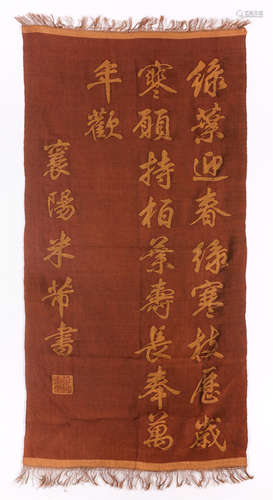 綠葉迎春綠寒枝歷歲
寒願持柏葉壽長奉萬
年歡
襄陽米芾書